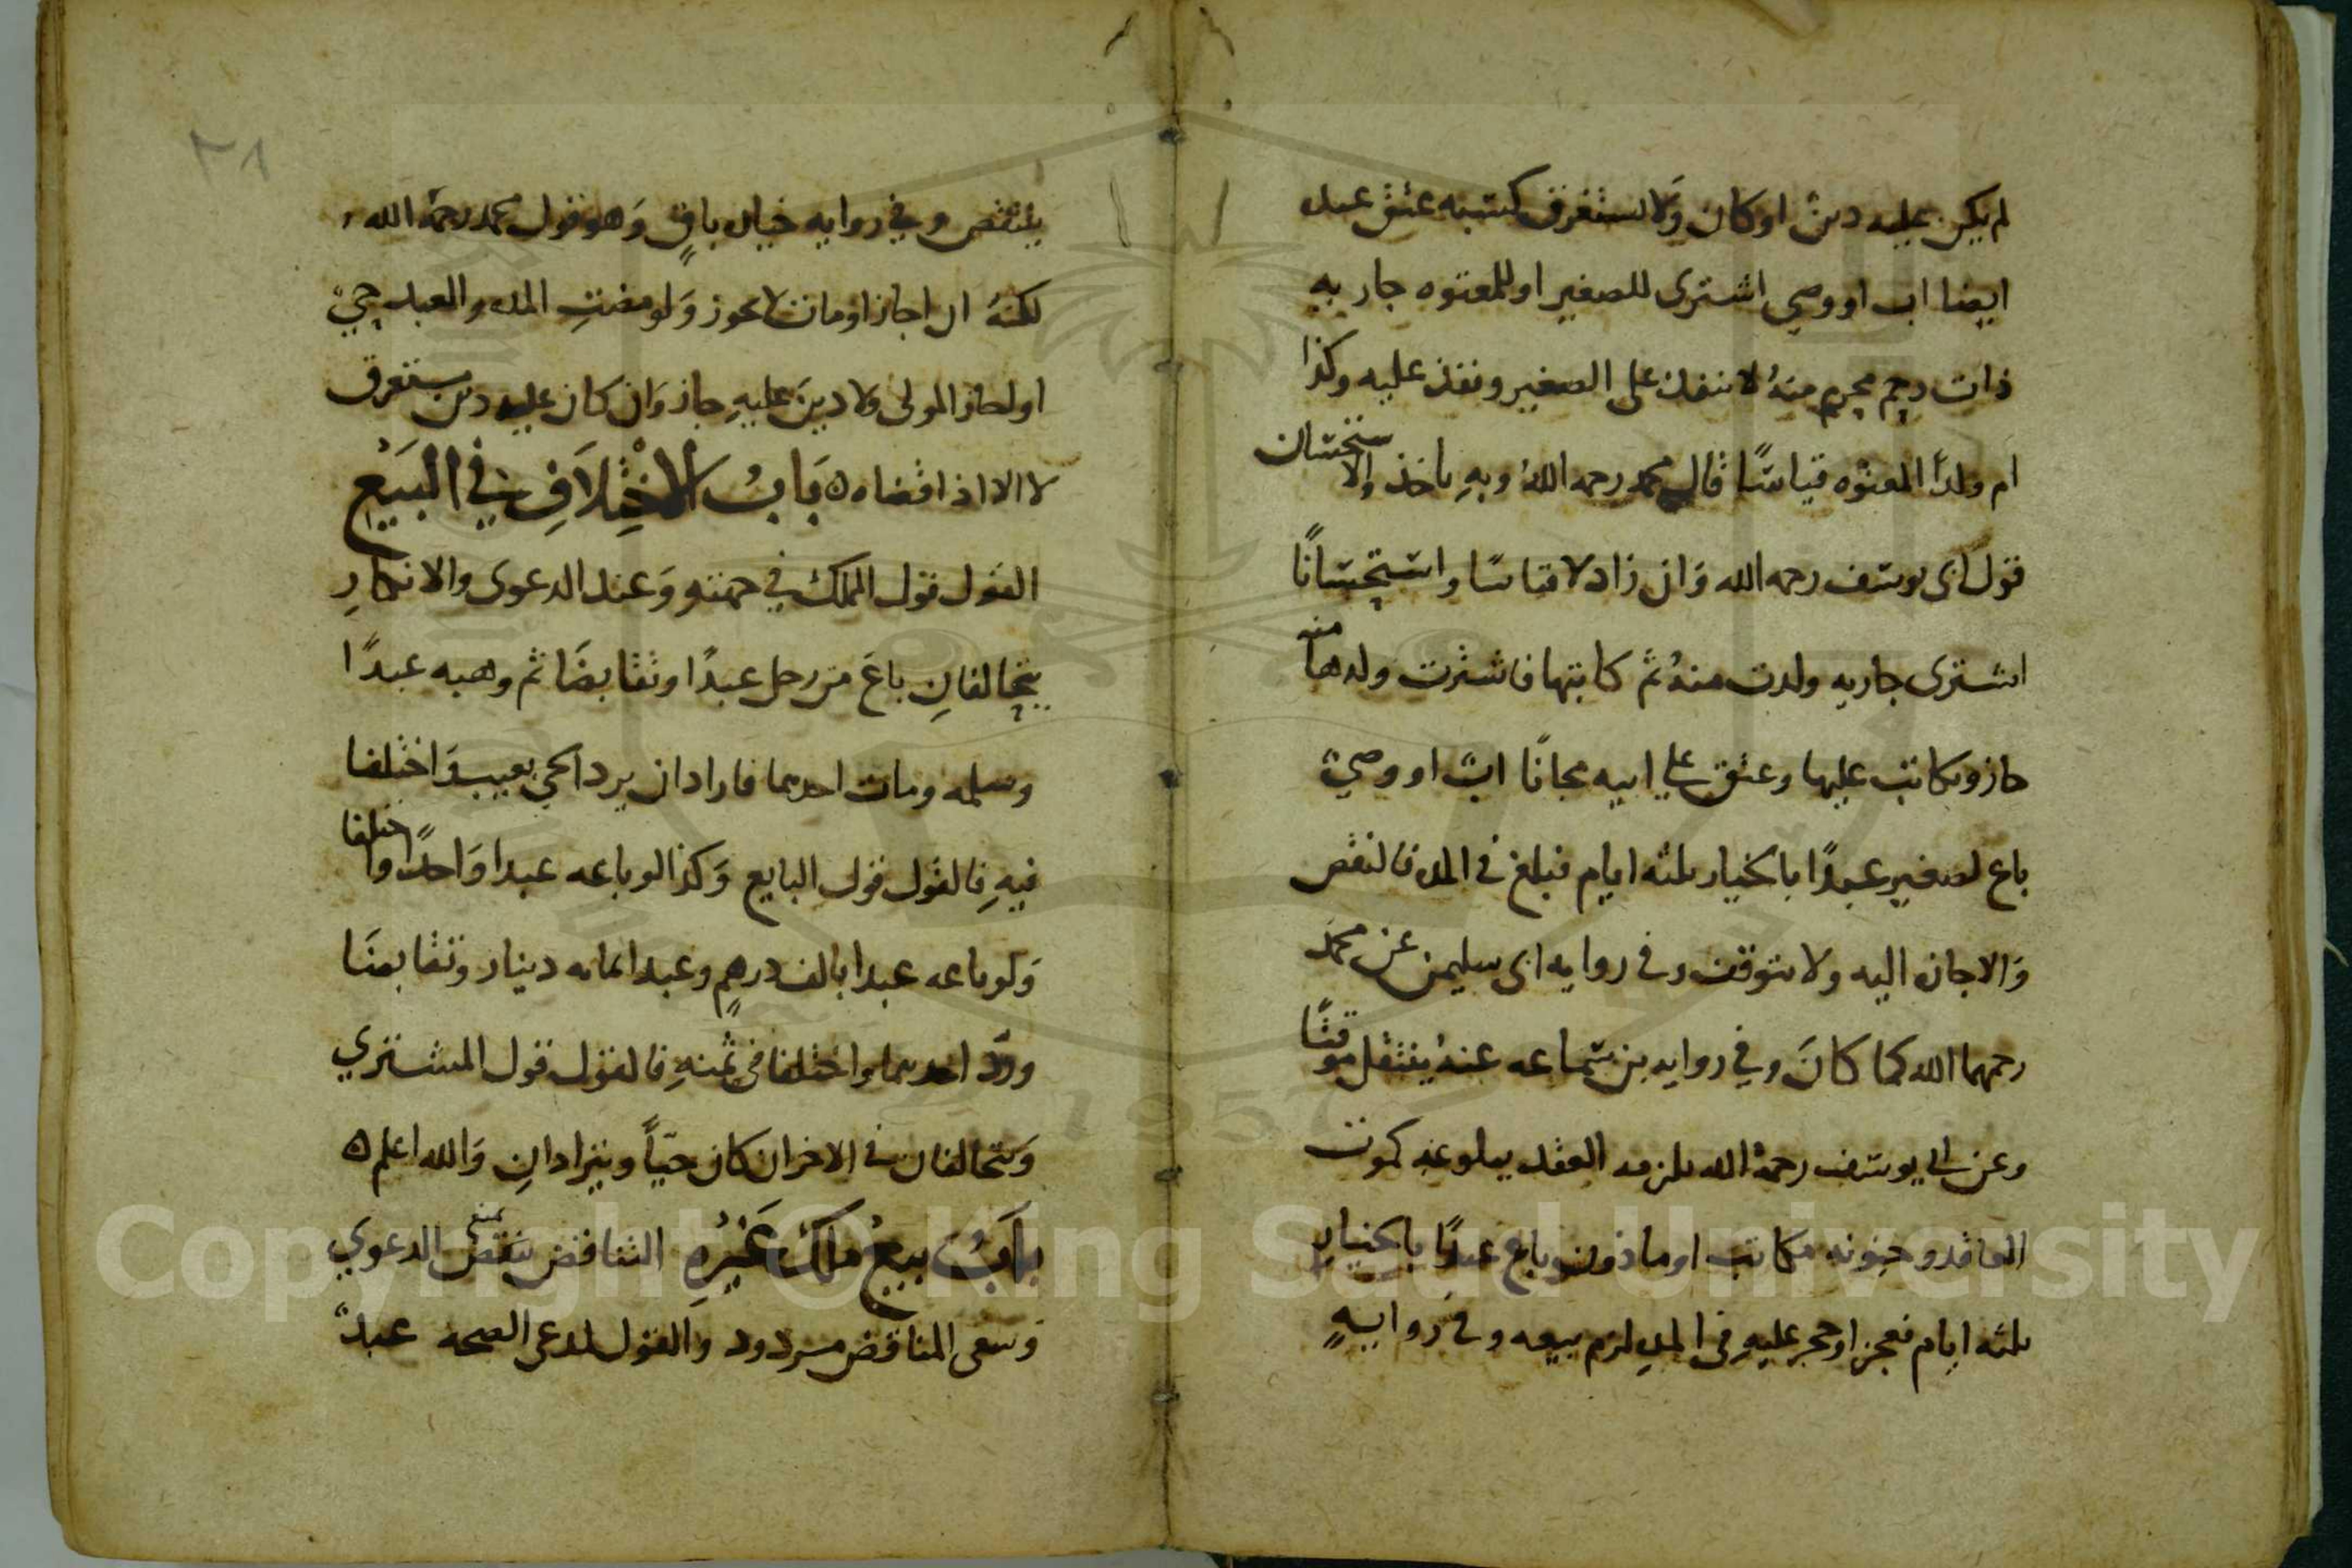 لم يكن عليه دين او كان ولا يستغرق كسبه عتق عبد
ايضا اب او وصي اشترى للصغير او للمعتوه جاريه
ذات رحم محرم منهُ لا ينفذ على الصغير ونفذ عليه وكذا
ام ولد المعتوه قياسًا قال محمد رحمه اللهُ وبهِ ناخذ والاستحسان
قول ابي يوسف رحمه الله وَان زاد لا قياسًا واستحسانًا
اشترى جاريه ولدت منهُ ثم كاتبها فاشترت ولدها منه
جاز وتكاتب عليها وعتق على ابيه مجانًا ابٌ او وصيٌ
باع لصغير عبدًا بالخيار ثلثه ايام فبلغ في المده فالنقض
وَالاجازه اليه ولا يتوقف وفي روايه ابي سليمن عن محمد
رحمهما الله كما كانَ وفي روايه بن سماعه عنهُ ينتقل موقتًا
وعن ابي يوسف رحمهُ الله يلزمه العقد ببلوغه كموت
العاقد وجنونه مكاتب او ماذون باع عبدًا بالخيار
ثلثه ايام فعجز او حجر عليهِ في المدهِ لزم بيعه وفي روايهٍ
٢٨
ينتقض وفي روايه خياره باقٍ وَهو قول محمد رحمهُ الله
لكنهُ ان اجاز او مات لا يجوز وَلو مضتِ المده والعبد حيٌ
او اجاز المولى ولا دينَ عليهِ جاز وَان كان عليه دين مستغرق
لا الا اذا قضاه ه بَابُ الاخْتِلَافِ في البَيْعِ
القول قول المملك في جهته وَعند الدعوى والانكارِ
يتحالفانِ باعَ من رجل عبدًا وتقابضَا ثم وهبه عبدًا
وسلمه ومات احدهما فاراد ان يرد الحي بعيب وَاختلفا
فيهِ فالقول قول البايع وَكذا لو باعه عبدا وَاحدًا واختلفا
وَلو باعه عبدا بالف درهمٍ وعبدا بمايه دينار وتقابضَا
وردّ احدهما واختلفا في ثمنهِ فالقول قول المشتري
وَيتحالفان في الاخر ان كان حيّاً ويترادانِ وَالله اعلم ه
بابُ بيعُ ملك غَيْرهِ التناقض يمنع الدعوي
وَسعى المناقض مردود والقول لمدعى الصحه عبدٌ
Copyright © King Saud University
1957